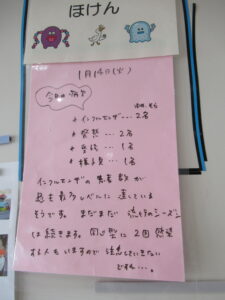 ほけん
1月14日(火)
今日の病欠
インフルエンザ…2名
発熱…2名
1名
1名
インフルエンザの患者数が
過去最多レベルに達している
そうです。まだまだ流行のシーズン
は続きます。同じ型に2回感染
する人もいますので注意していきたい
ですね…。